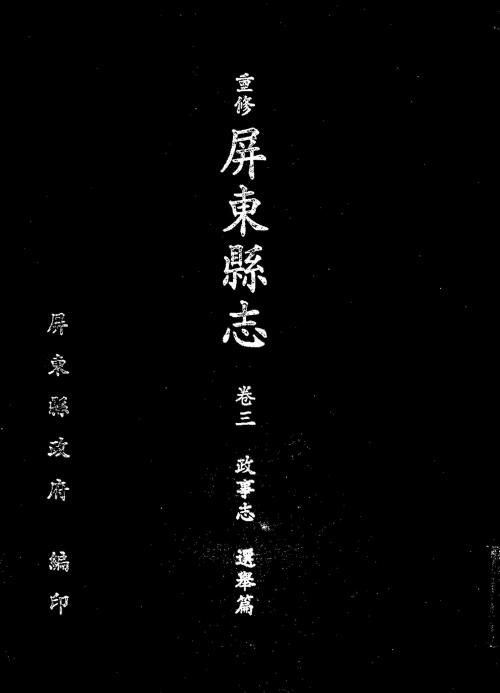 重修 屏東縣志 卷三 政事志 選舉篇
屏東縣政府 編印